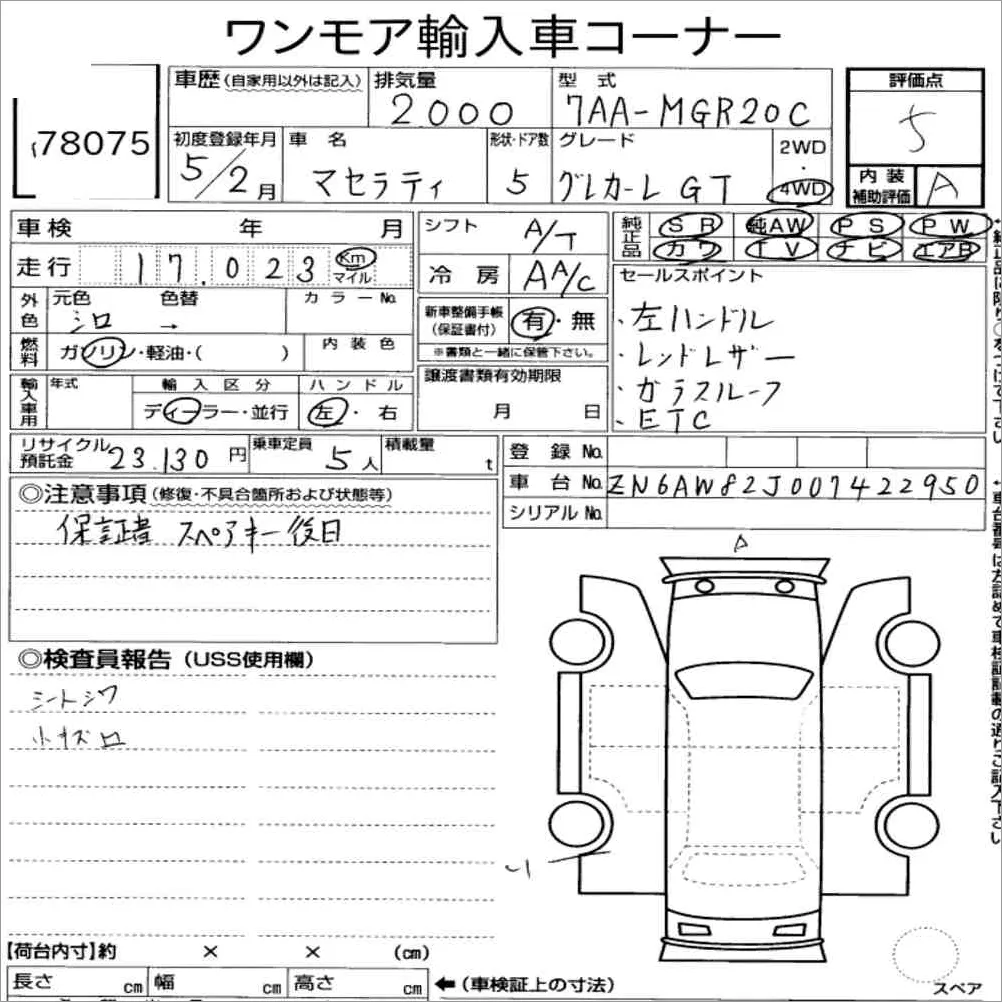 ワンモア輸入車コーナー
78075
車歴 (自家用以外は記入)
排気量
2000
型式
7AA-MGR20C
評価点
5
初度登録年月
5/2月
車名
マセラティ
形状・ドア数
5
グレード
グレカーレ GT
2WD
・
4WD
内装
補助評価
A
車検 年 月
走行 17.023 Km
マイル
シフト
A/T
冷房
AA/C
純正品
SR 純AW PS PW
カワ TV ナビ エアB
セールスポイント
・左ハンドル
・レッドレザー
・ガラスルーフ
・ETC
外色
元色 色替 カラーNo.
シロ →
燃料
ガソリン・軽油・( )
内装色
新車整備手帳
(保証書付)
有・無
※書類と一緒に保管下さい。
輸入車用
年式
輸入区分
ハンドル
ディーラー・並行
左・右
譲渡書類有効期限
月 日
リサイクル
預託金 23.130円
乗車定員
5人
積載量
t
登録No.
車台No. ZN6AW82J007422950
シリアルNo.
◎注意事項 (修復・不具合箇所および状態等)
保証書 スペアキー後日
◎検査員報告 (USS使用欄)
シートシワ
小キズ
A
【荷台内寸】約 × × (cm)
長さ cm 幅 cm 高さ cm
←(車検証上の寸法)
スペア